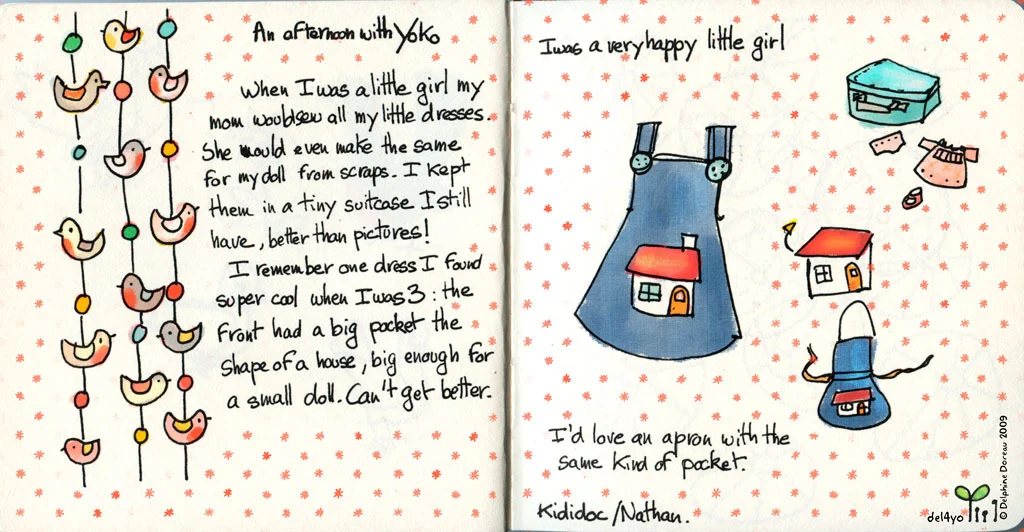 An afternoon with Yoko
When I was a little girl my
mom would sew all my little dresses.
She would even make the same
for my doll from scraps. I kept
them in a tiny suitcase I still
have, better than pictures!
I remember one dress I found
super cool when I was 3 : the
front had a big pocket the
shape of a house, big enough for
a small doll. Can't get better.
I was a very happy little girl
I'd love an apron with the
same kind of pocket.
Kididoc / Nathan.
del4yo
© Delphine Doreau 2009